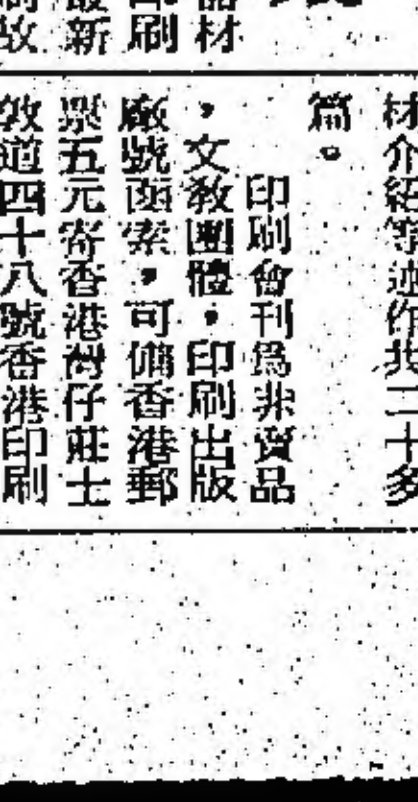 器材
印刷
最新
制故
材介紹等述作共二十多
篇。
印刷會刊爲非賣品
，文教團體，印刷出版
廠號函索，可備香港郵
票五元寄香港灣仔莊士
敦道四十八號香港印刷